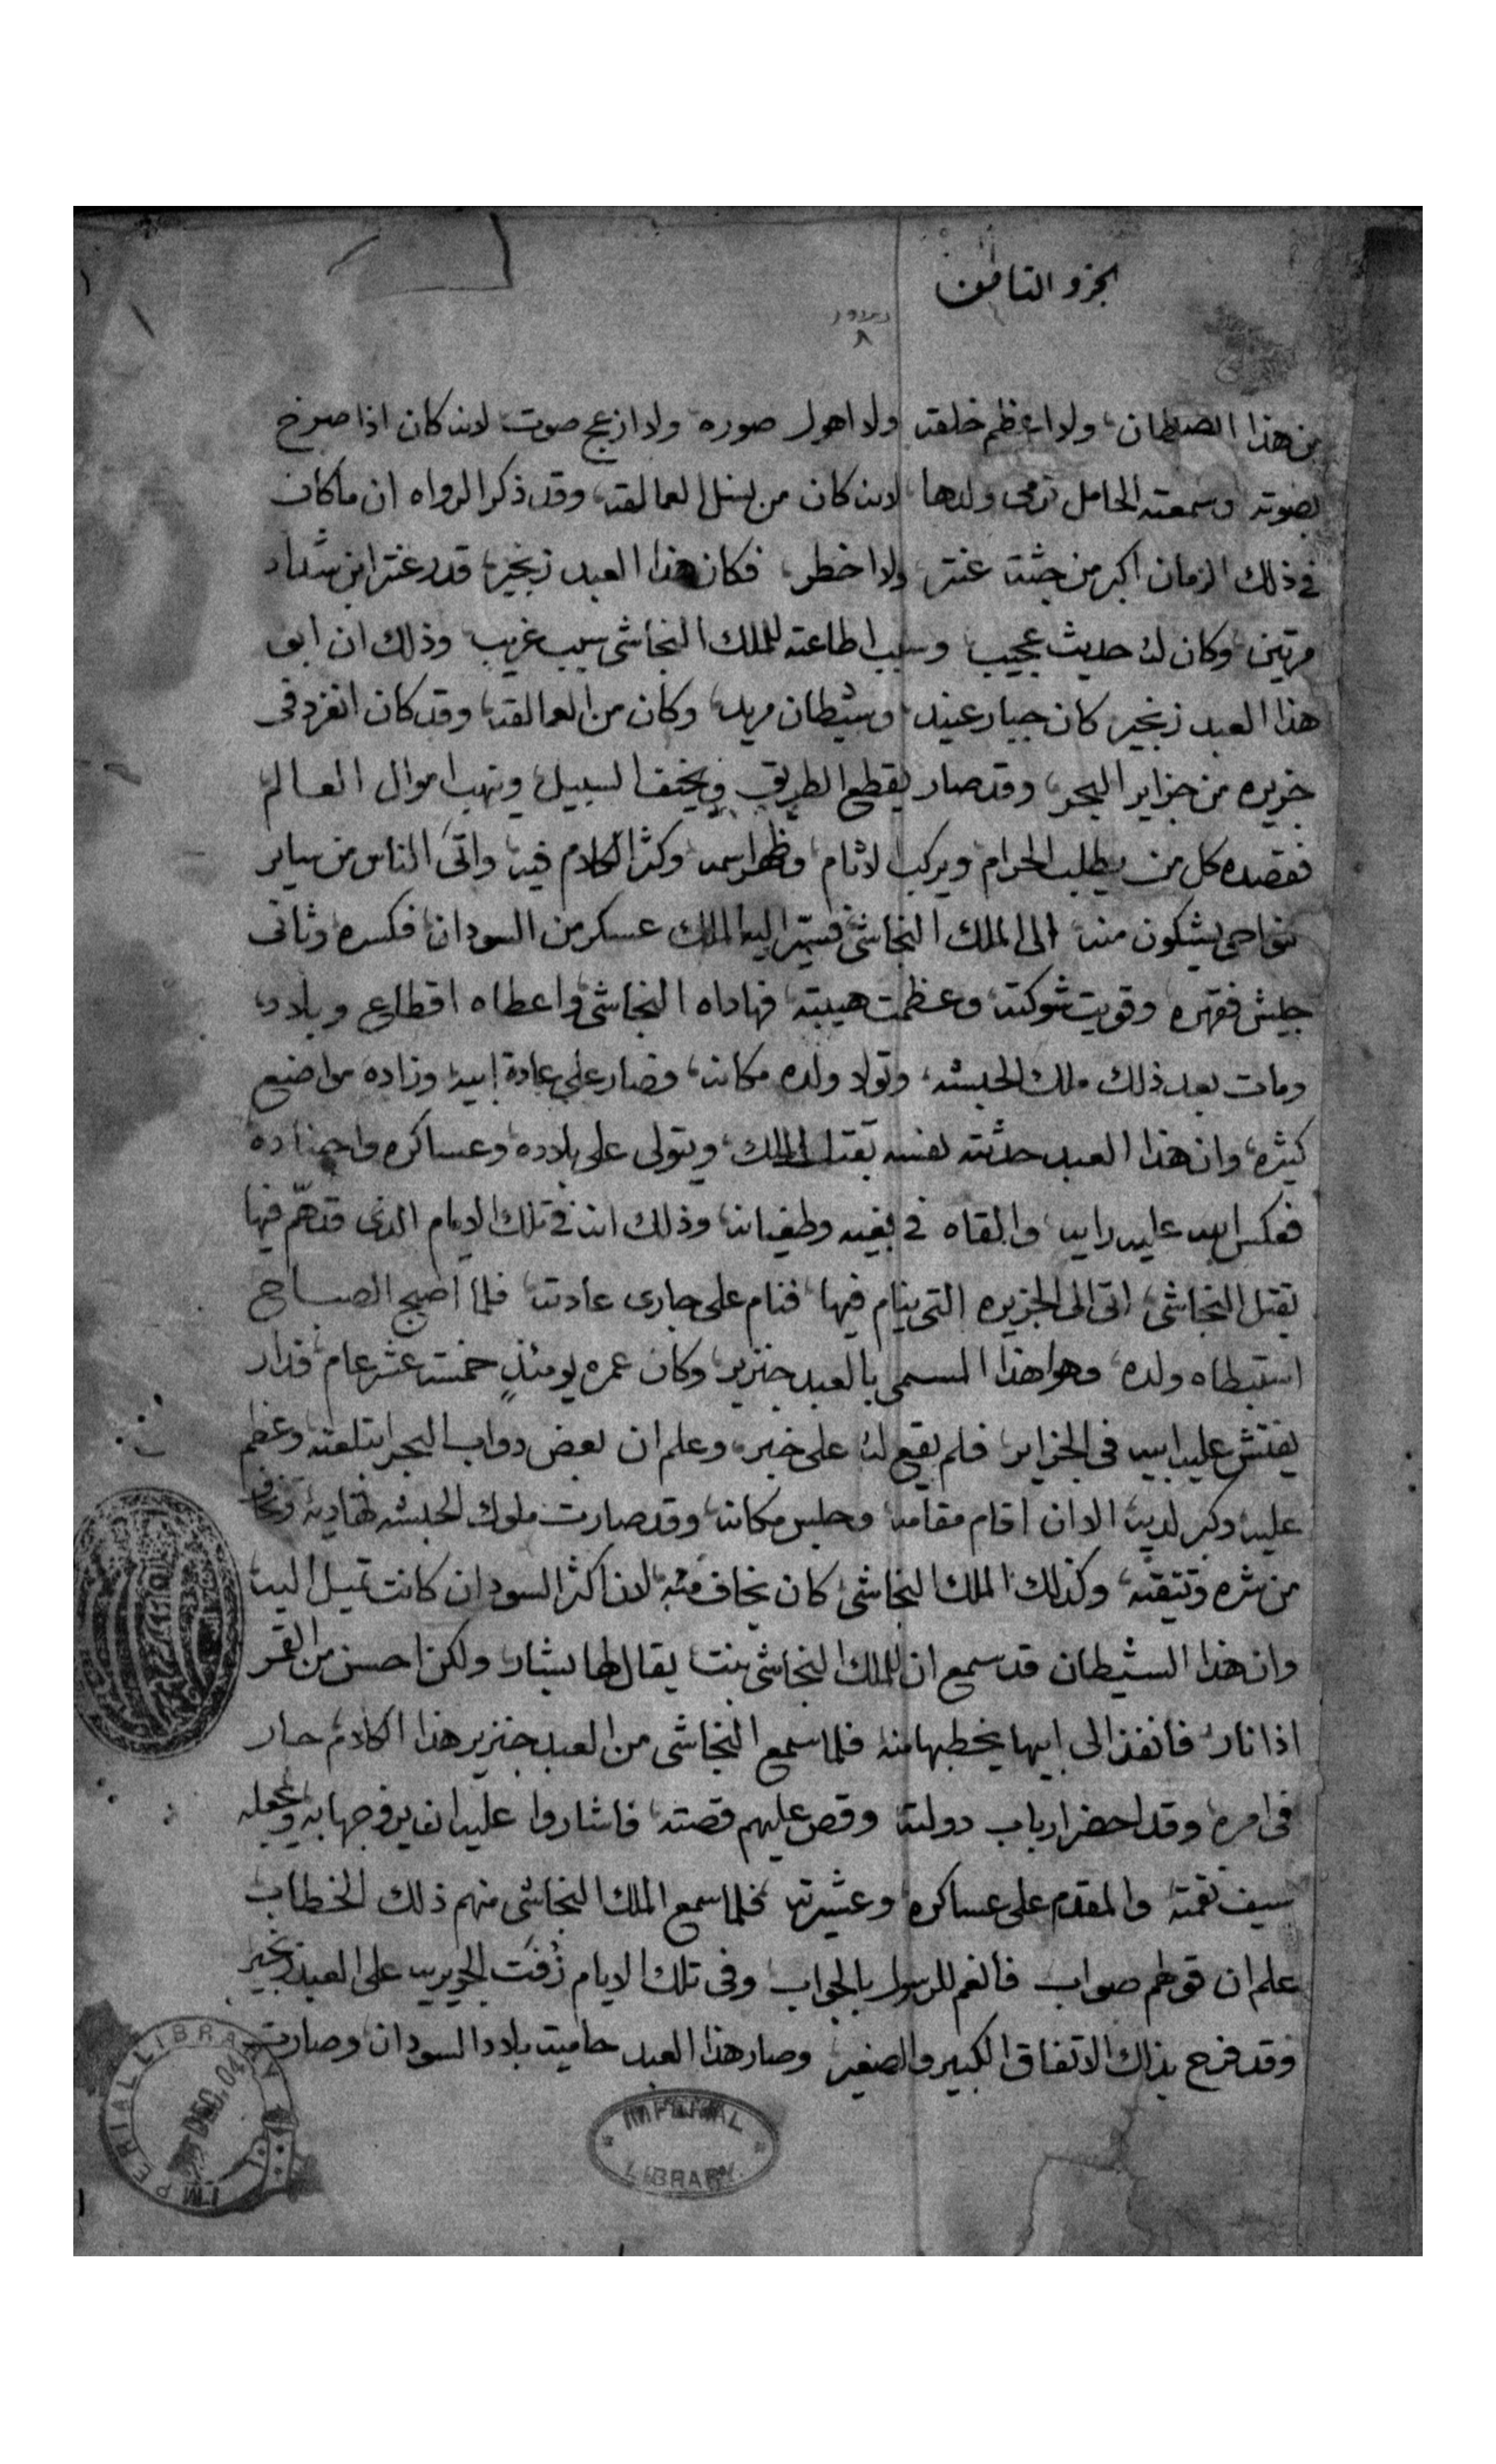 الجزو الثامن
٨
من هذا الشيطان ولا اعظم خلقه ولا اهول صوره ولا ازعج صوت لانه كان اذا صرخ
بصوته وسمعته الحامل ترمى ولدها لانه كان من نسل العمالقه وقد ذكر الرواه ان ماكان
فى ذلك الزمان اكبر من جثت عنتر ولا اخطر فكان هذا العبد زنجير قدر عنتر ابن شداد
مرتين وكان له حديث عجيب وسبب اطاعته للملك النجاشى سبب غريب وذلك ان ابو
هذا العبد زنجير كان جبار عنيد وشيطان مريد وكان من العمالقه وقد كان انفرد فى
جزيره من جزاير البحر وقد صار يقطع الطريق ويخيف السبيل وينهب اموال العالم
فقصده كل من يطلب الحرام ويركب الاثام وظهر اسمه وكثر الكلام فيه واتى الناس من ساير
نواحى يشكون منه الى الملك النجاشى فسيّر اليه الملك عسكر من السودان فكسره وثانى
جيش فقهره وقويت شوكته وعظمت هيبته فهاداه النجاشى واعطاه اقطاع وبلاد
ومات بعد ذلك ملك الحبشه وتولا ولده مكانه فصار على عادة ابيه وزاده مواضيع
كثيره وان هذا العبد حدثته نفسه بقتل الملك ويتولى على بلاده وعساكره واجناده
فعكس الله عليه رايه والقاه فى بغيه وطغيانه وذلك انه فى تلك الايام الذى قد همّ فيها
بقتل النجاشى اتى الى الجزيره التى ينام فيها فنام على جارى عادته فلما اصبح الصباح
استبطاه ولده وهو هذا المسمى بالعبد جنزير وكان عمره يومئذٍ خمست عشر عام فدار
يفتش عليه ابيه فى الجزاير فلم يقع له على خبر وعلم ان بعض دواب البحر ابتلعته وعظم
عليه وكبر لديه الا ان اقام مقامه وجلس مكانه وقد صارت ملوك الحبشه تهاديه وتخاف
من شره وتتقيه وكذلك الملك النجاشى كان يخاف منه لان اكثر السودان كانت تميل اليه
وان هذا الشيطان قد سمع ان للملك النجاشى بنت يقال لها بشار ولكن احسن من القمر
اذا نار فانفذ الى ابيها يخطبها منه فلما سمع النجاشى من العبد جنزير هذا الكلام حار
فى امره وقد احضر ارباب دولته وقص عليهم قصته فاشاروا عليه انه يزوجها به ويجعله
سيف نقمته والمقدم على عساكره وعشيرته فلما سمع الملك النجاشى منهم ذلك الخطاب
علم ان قولهم صواب فانعم للرسول بالجواب وفى تلك الايام زُفت الجويريه على العبد زنجير
وقد فرح بذلك الاتفاق الكبير والصغير وصار هذا العبد حاميت بلاد السودان وصارت
IMPERIAL LIBRARY
DEC. 04
IMPERIAL LIBRARY